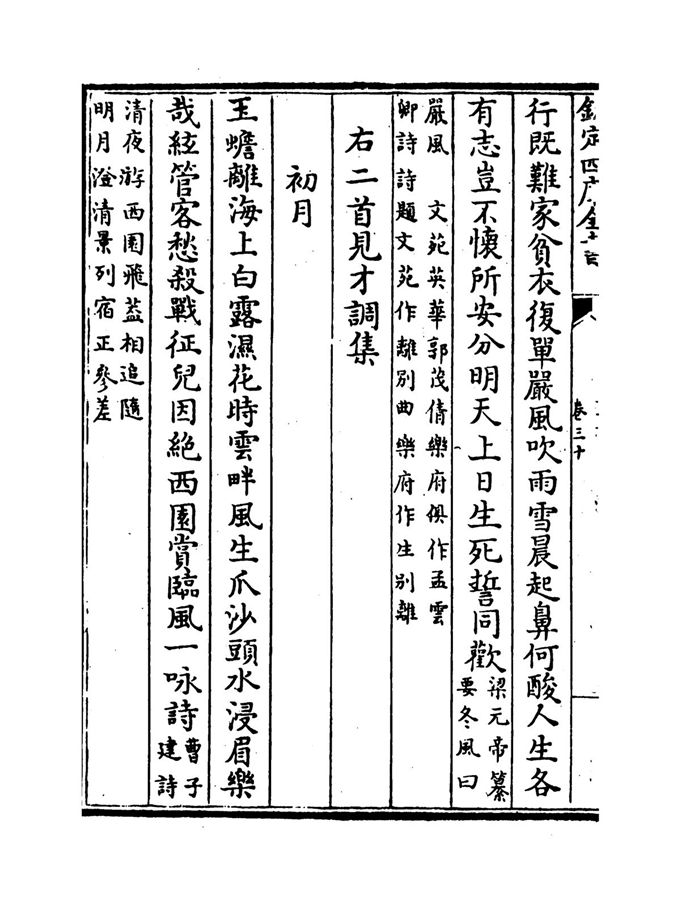 欽定四庫全書
卷三十
行既難家貧衣復單嚴風吹雨雪晨起鼻何酸人生各
有志豈不懷所安分明天上日生死誓同歡梁元帝纂
要冬風曰
嚴風　文苑英華郭茂倩樂府俱作孟雲
卿詩詩題文苑作離別曲樂府作生別離
右二首見才調集
初月
玉蟾離海上白露濕花時雲畔風生爪沙頭水浸眉樂
哉絃管客愁殺戰征兒因絶西園賞臨風一咏詩曹子
建詩
清夜游西園飛葢相追隨
明月澄清景列宿正參差